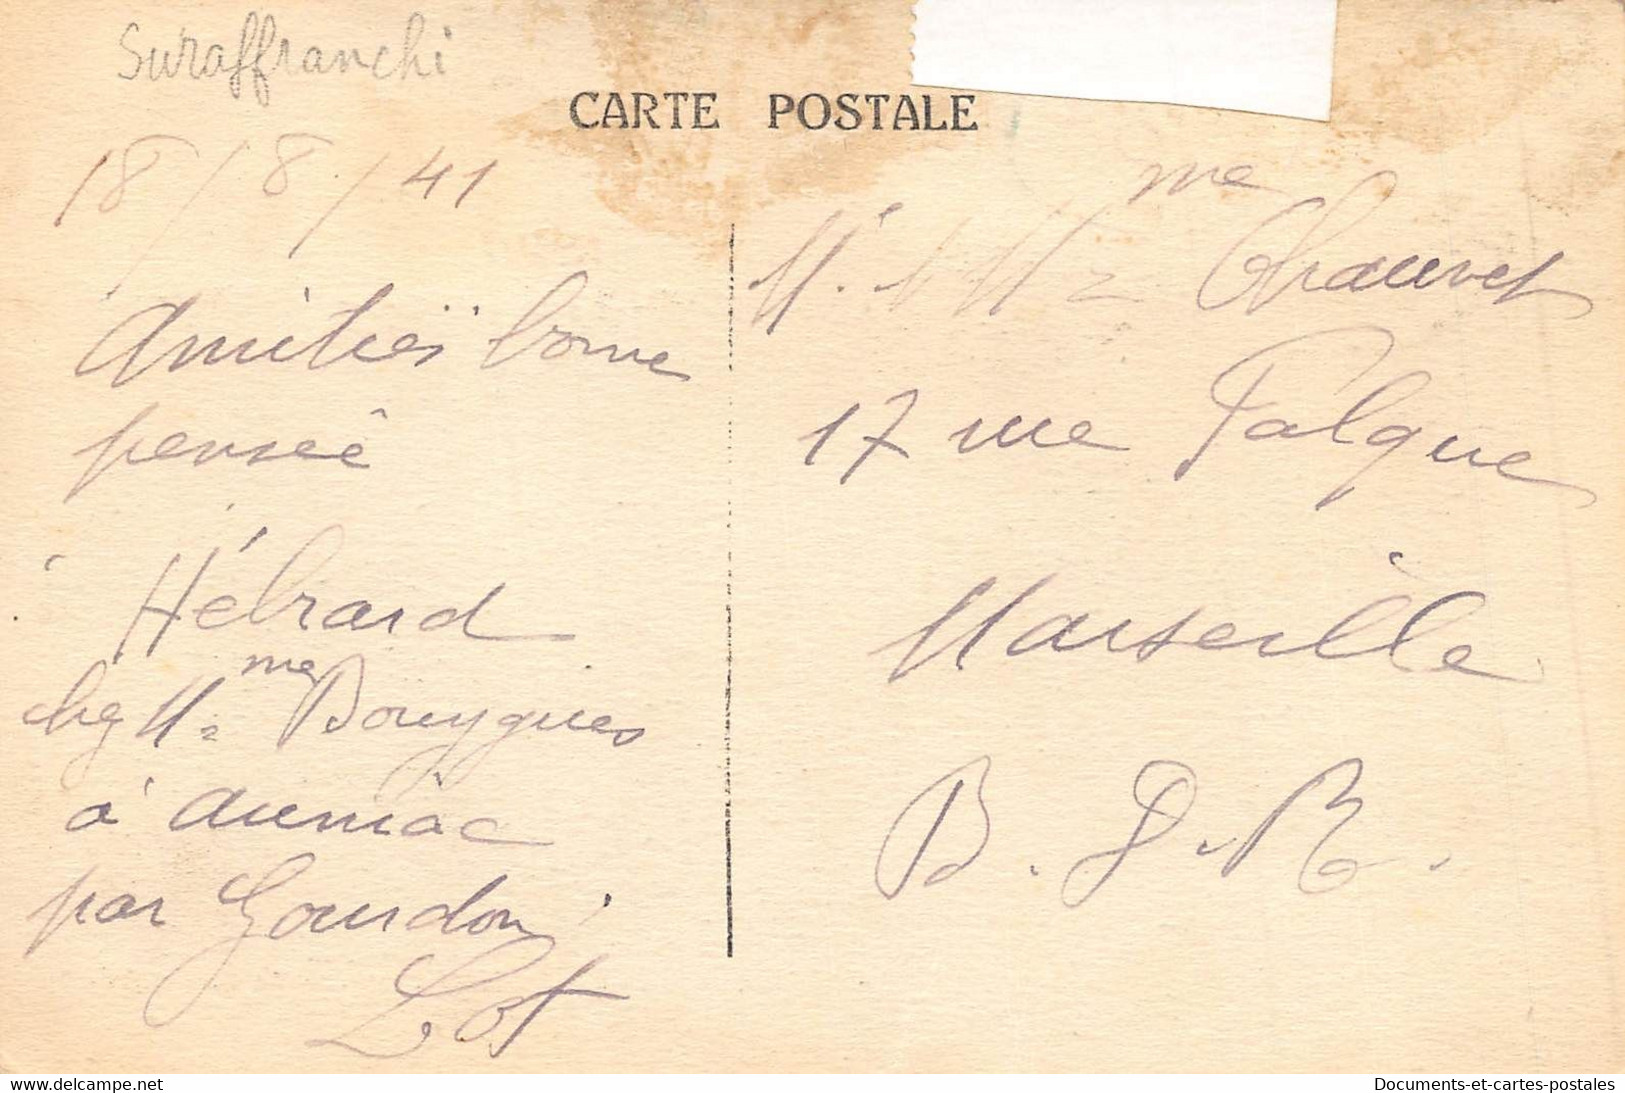 Suraffranchi
CARTE POSTALE
18/8/41
Amitiés bonne
pensée
Hébrard
chez Mme Bouygues
à auniac
par Gourdon
Lot
Mr & Mme Chauvet
17 rue Falque
Marseille
B. D. R.
www.delcampe.net
Documents-et-cartes-postales